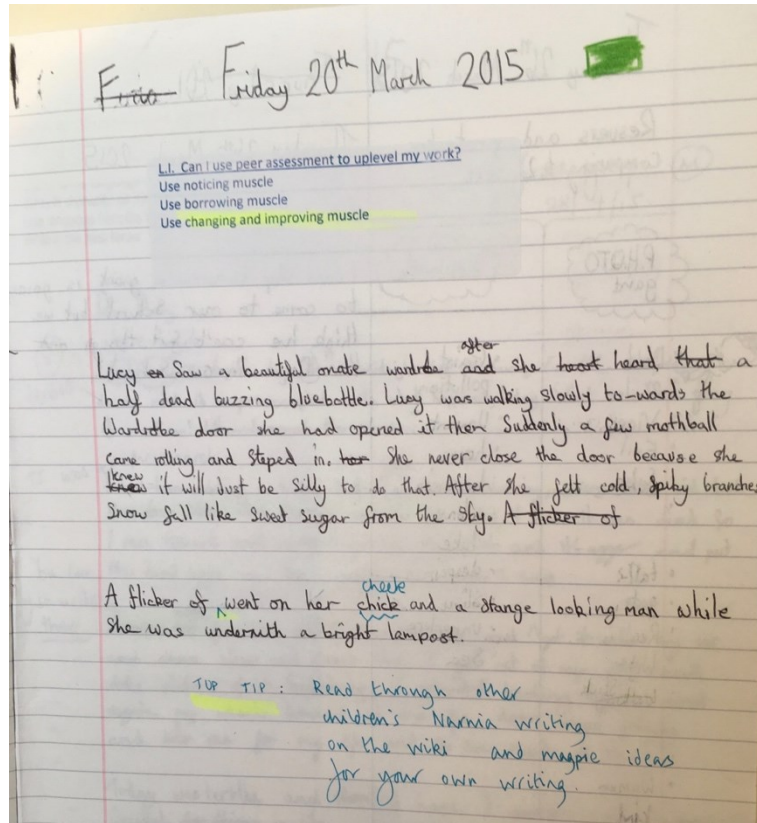 Friday 20th March 2015
L.I. Can I use peer assessment to uplevel my work?
Use noticing muscle
Use borrowing muscle
Use changing and improving muscle
after
Lucy en Saw a beautiful onate wardrobe and she heart heard that a
half dead buzzing bluebottle. Lucy was walking slowly to-wards the
Wardrobe door she had opened it then Suddenly a few mothball
came rolling and Steped in. her She never close the door because she
knew
knew it will Just be silly to do that. After she felt cold, Spiky branches
Snow fall like sweet sugar from the sky. A flicker of
cheek
A flicker of went on her chick and a stange looking man while
She was undernith a bright lampost.
TOP TIP: Read through other
children's Narnia writing
on the wiki and magpie ideas
for your own writing.